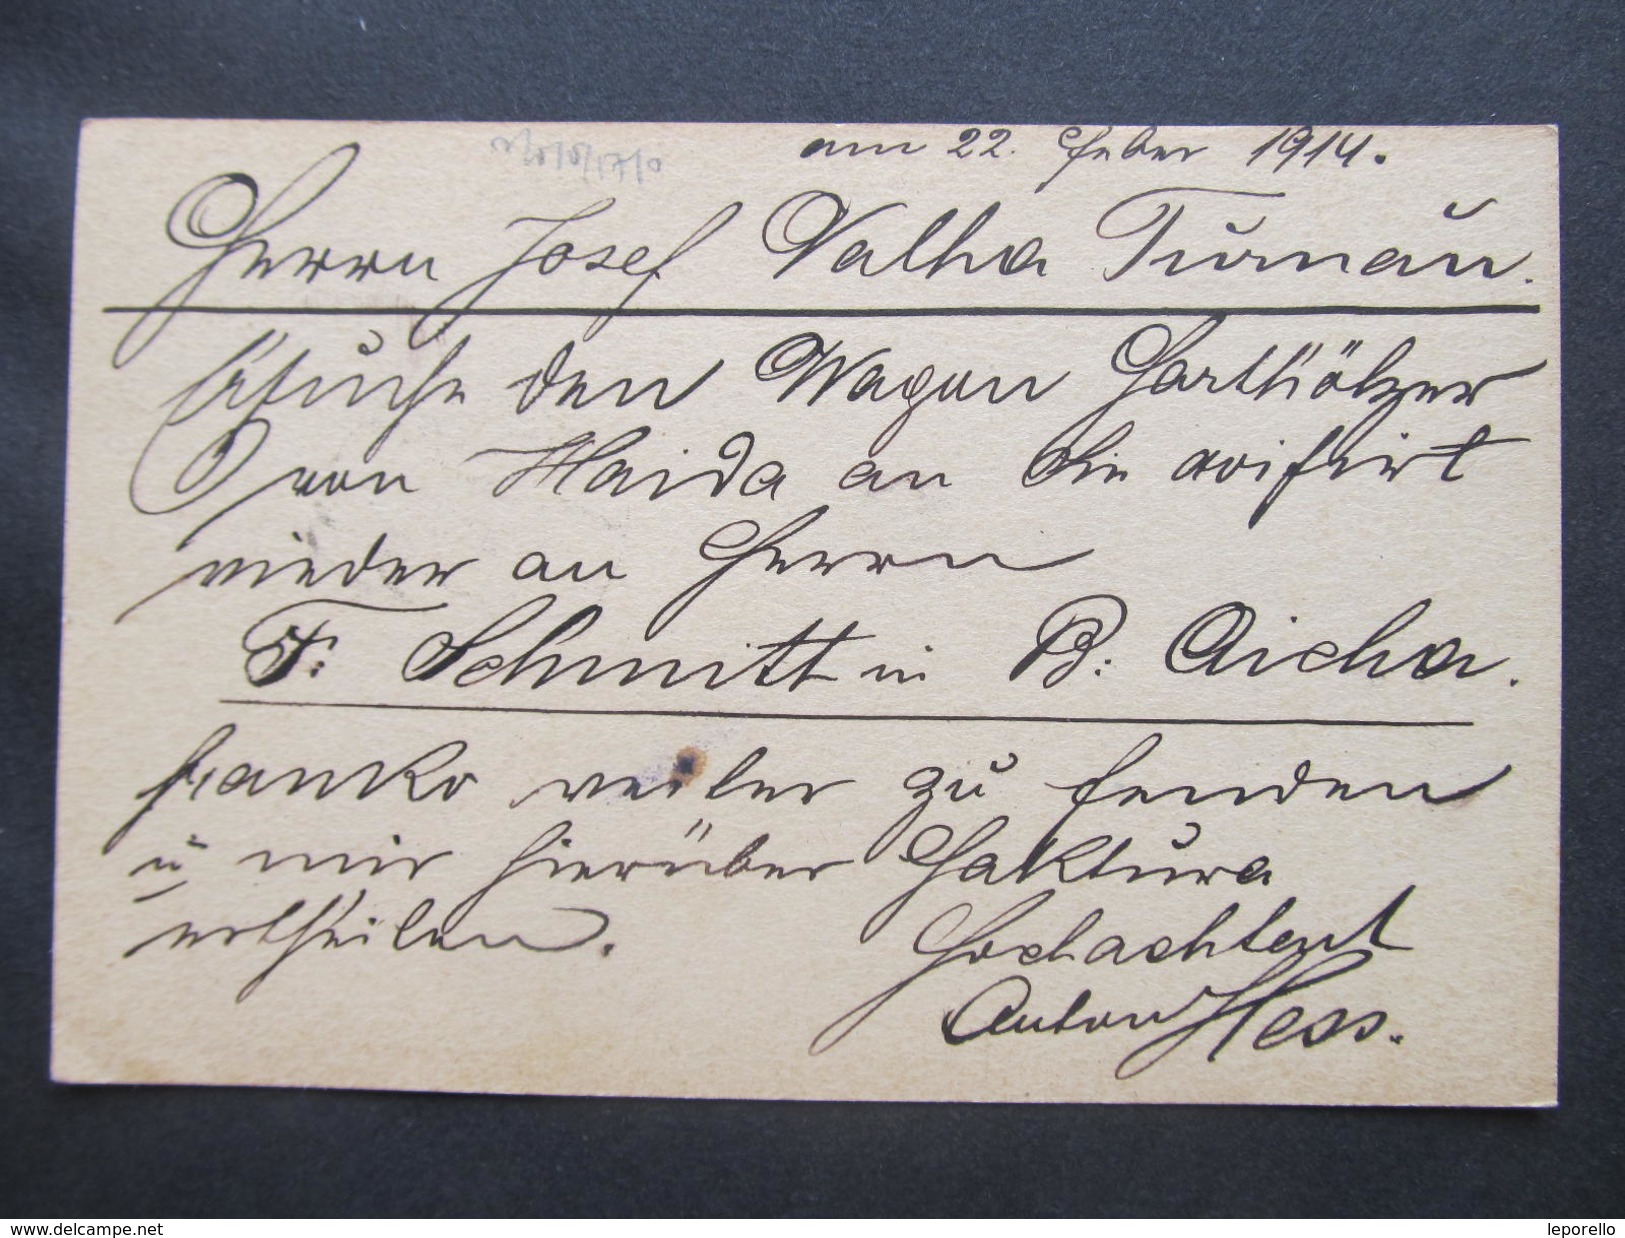 am 22. Feber 1914.
Herrn Josef Valha Turnau.
Ersuche den Wagon Harthölzer
von Haida an Sie avisirt
wieder an Herrn
F. Schmitt in B. Aicha.
franko weiter zu senden
u mir hierüber Faktura
ertheilen.
Hochachtend
Anton Hess.
www.delcampe.net
leporello